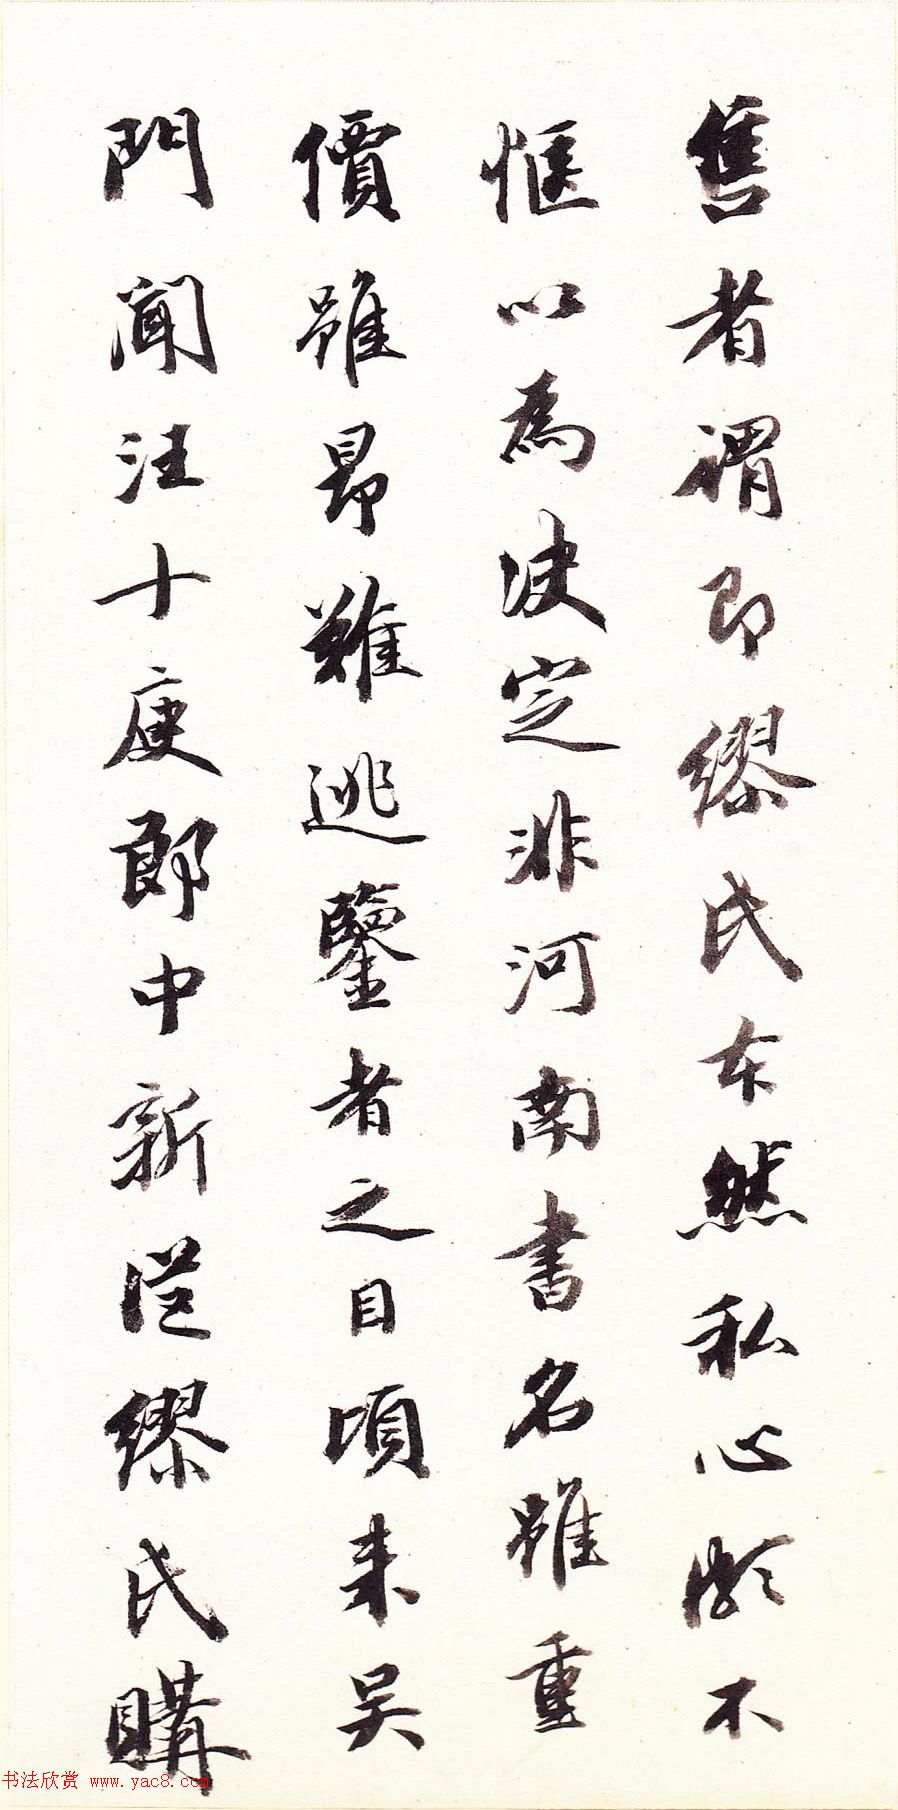 售者謂即繆氏本然私心頗不
愜以為決定非河南書名雖重
價雖昂難逃鑒者之目頃來吳
門聞汪十庚郎中新從繆氏購
书法欣赏 www.yac8.com